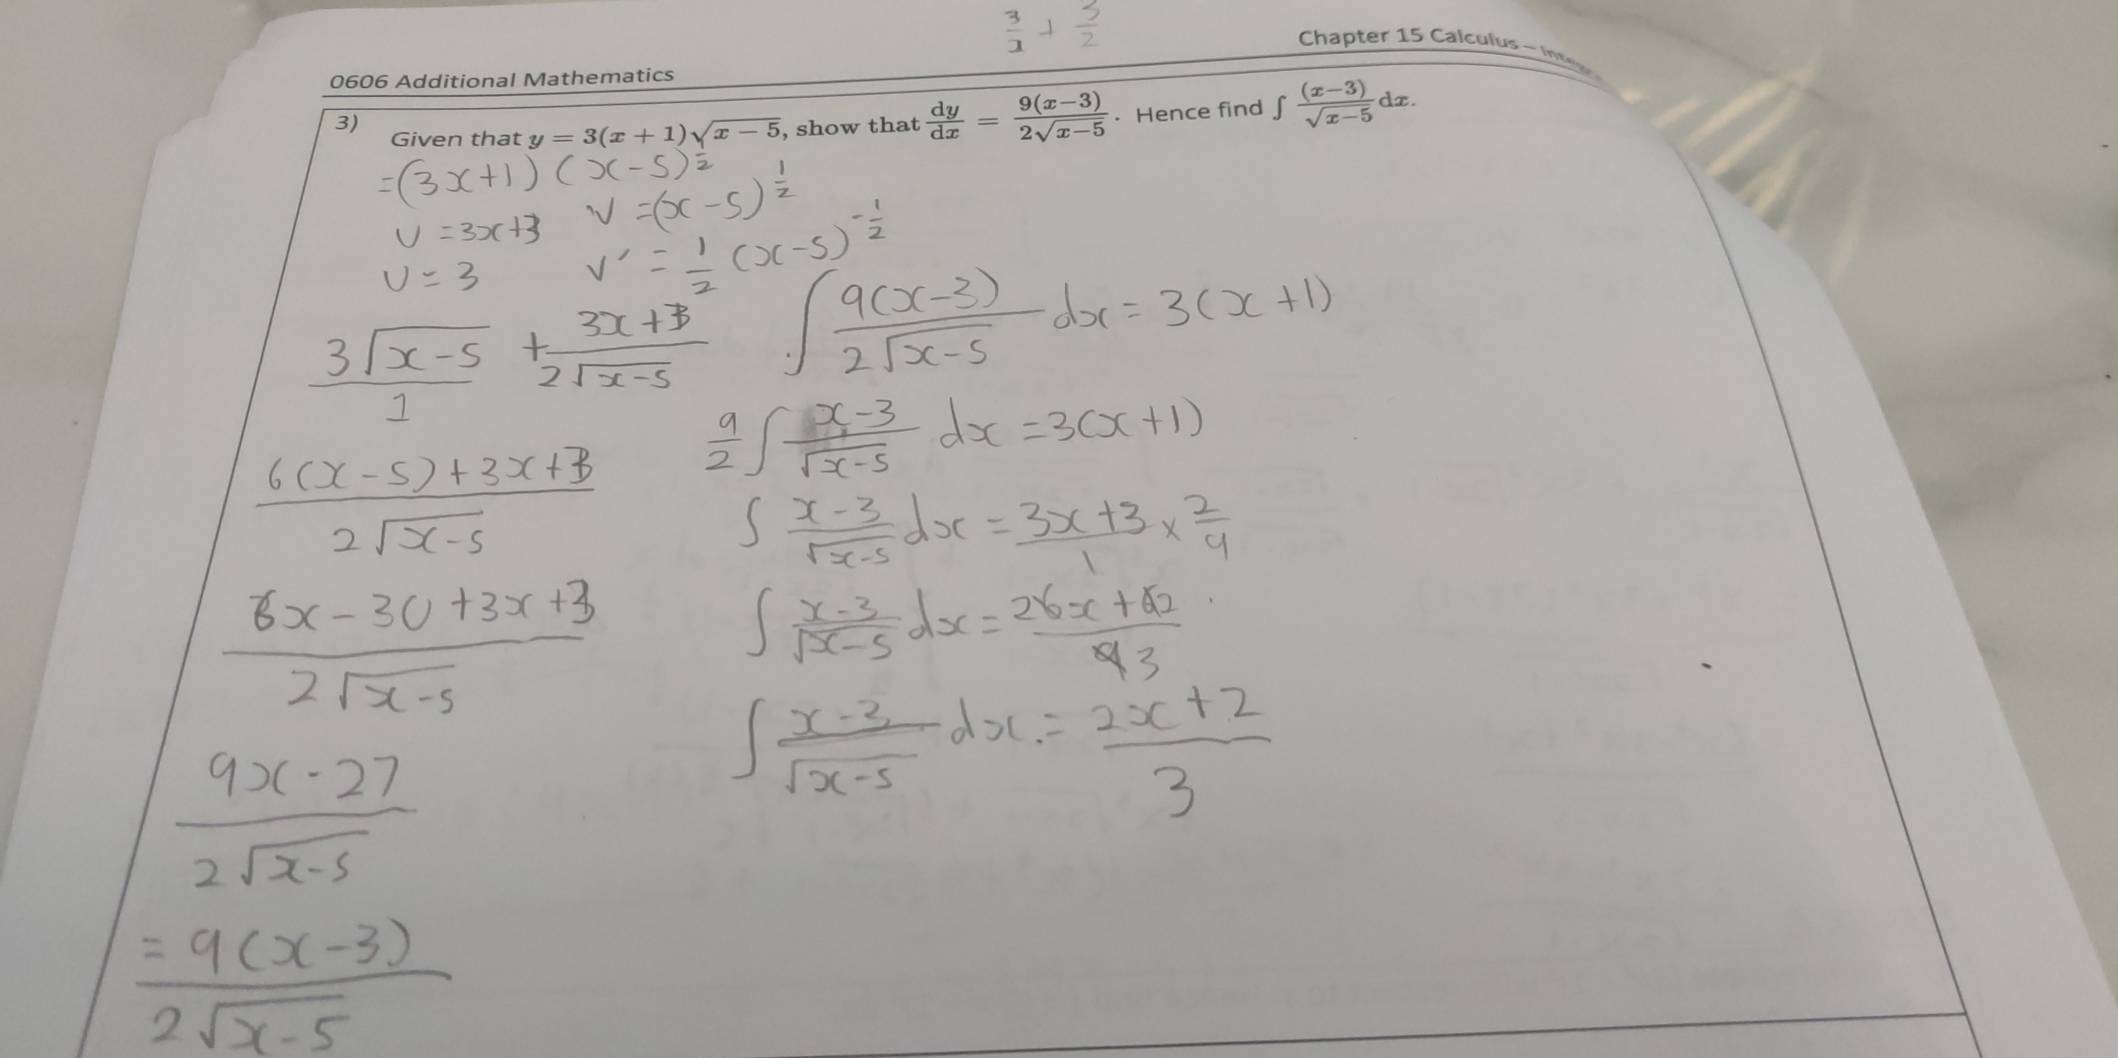 3/2 + 3/2
0606 Additional Mathematics
Chapter 15 Calculus –
3) Given that y = 3(x + 1)√(x − 5), show that dy/dx = 9(x−3)/(2√(x−5)). Hence find ∫ (x−3)/√(x−5) dx.
=(3x+1) (x-5)^½
U = 3x+3
V =(x-5)^½
U = 3
V' = 1/2 (x-5)^-½
3√(x-5)/1 + (3x+3)/(2√(x-5))
(6(x-5)+3x+3)/(2√(x-5))
(6x-30+3x+3)/(2√(x-5))
(9x-27)/(2√(x-5))
= 9(x-3)/(2√(x-5))
∫ 9(x-3)/(2√(x-5)) dx = 3(x+1)
9/2 ∫ (x-3)/√(x-5) dx = 3(x+1)
∫ (x-3)/√(x-5) dx = (3x+3)/1 × 2/9
∫ (x-3)/√(x-5) dx =
∫ (x-3)/√(x-5) dx = (2x+2)/3